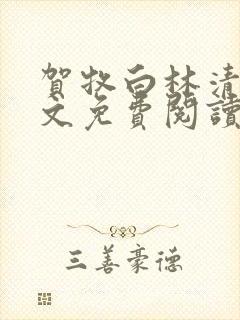 賀牧白林清
文免費閱讀
三善豪德